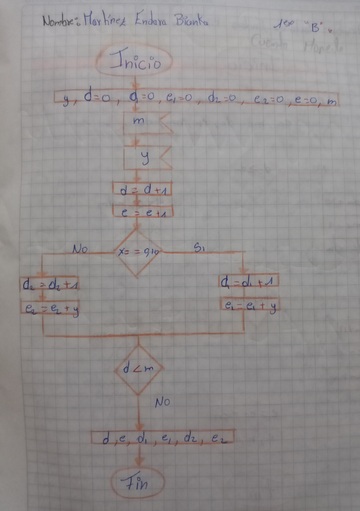 Nombre: Martínez Endara Bianka
1ro "B"
Inicio
y, d=0, d1=0, e1=0, d2=0, e2=0, e=0, m
m
y
d = d+1
e = e+1
No
Si
d2 = d2+1
d1 = d1+1
e2 = e2+y
e1 = e1+y
d<m
No
d, e, d1, e1, d2, e2
Fin